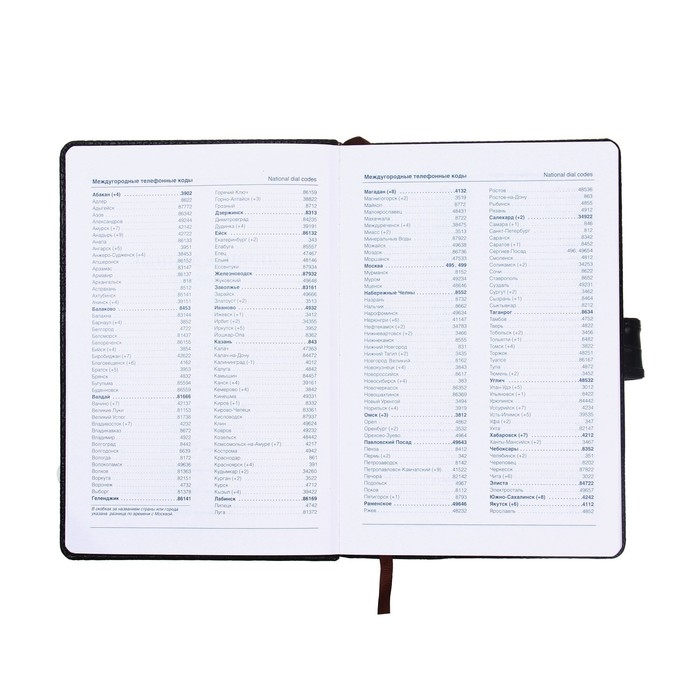 Междугородные телефонные коды National dial codes
Абакан (+4) 3902
Адлер 8622
Адыгейск 87772
Азов 86342
Александров 49244
Амурск (+7) 42142
Анадырь (+9) 42722
Анапа 86133
Ангарск (+5) 3951
Анжеро-Судженск (+4) 38453
Апшеронск 86152
Арзамас 83147
Армавир 86137
Архангельск 818
Астрахань 8512
Ахтубинск 85141
Ачинск (+4) 39151
Балаково 8453
Балахна 83144
Барнаул (+4) 3852
Белгород 4722
Беломорск 81437
Белореченск 86155
Бийск (+4) 3854
Биробиджан (+7) 42622
Благовещенск (+6) 4162
Братск (+5) 3953
Брянск 4832
Бугульма 85594
Буденновск 86559
Валдай 81666
Ванино (+7) 42137
Великие Луки 81153
Великий Устюг 81738
Владивосток (+7) 4232
Владикавказ 8672
Владимир 4922
Волгоград 8442
Волгодонск 8639
Вологда 8172
Волоколамск 49636
Волхов 81363
Воркута 82151
Воронеж 4732
Выборг 81378
Геленджик 86141
В скобках за названием страны или города
указана разница по времени с Москвой.
Горячий Ключ 86159
Горно-Алтайск (+3) 38822
Грозный 8712
Дзержинск 8313
Димитровград 84235
Дудинка (+4) 39191
Ейск 86132
Екатеринбург (+2) 343
Елабуга 85557
Елец 47467
Ельня 48146
Ессентуки 87934
Железноводск 87932
Жуковский 49648
Заволжье 83161
Зарайск 49666
Златоуст (+2) 3513
Иваново 4932
Ижевск (+1) 3412
Иркутск (+5) 3952
Йошкар-Ола 8362
Казань 843
Калач 47363
Калач-на-Дону 84472
Калининград (-1) 4012
Калуга 4842
Камышин 84457
Канск (+4) 39161
Кемерово (+4) 3842
Кинешма 49331
Киров (+1) 8332
Кирово-Чепецк 83361
Кисловодск 87937
Клин 49624
Ковров 49232
Козельск 48442
Комсомольск-на-Амуре (+7) 4217
Кострома 4942
Краснодар 861
Красноярск (+4) 391
Кудымкар (+2) 34260
Курган (+2) 3522
Курск 4712
Кызыл (+4) 39422
Лабинск 86169
Липецк 4742
Луга 81372
Междугородные телефонные коды National dial codes
Магадан (+8) 4132
Магнитогорск (+2) 3519
Майкоп 8772
Малоярославец 48431
Махачкала 8722
Междуреченск (+4) 38475
Миасс (+2) 3513
Минеральные Воды 87922
Можайск 49638
Моздок 86736
Моршанск 47533
Москва 495, 499
Мурманск 8152
Муром 49234
Мценск 48646
Набережные Челны 8552
Назрань 8732
Нальчик 8662
Нарофоминск 49634
Нерюнгри (+6) 41147
Нефтекамск (+2) 34783
Нижневартовск (+2) 3466
Нижнекамск 8555
Нижний Новгород 831
Нижний Тагил (+2) 3435
Новгород Великий 8162
Новокузнецк (+4) 3843
Новороссийск 8617
Новосибирск (+4) 383
Новочеркасск 86352
Новошахтинск 86369
Новый Уренгой 3494
Норильск (+4) 3919
Омск (+3) 3812
Орел 4862
Оренбург (+2) 3532
Орехово-Зуево 4964
Павловский Посад 49643
Пенза 8412
Пермь (+2) 342
Петрозаводск 8142
Петропавловск-Камчатский (+9) 41522
Печера 82142
Подольск 4967
Псков 8112
Пятигорск (+1) 8793
Раменское 49646
Ржев 48232
Ростов 48536
Ростов-на-Дону 863
Рыбинск 4855
Рязань 4912
Салехард (+2) 34922
Самара (+1) 846
Санкт-Петербург 812
Саранск 8342
Саратов (+1) 8452
Сергиев Посад 496, 49654
Смоленск 4812
Соликамск (+2) 34253
Сочи 8622
Ставрополь 8652
Суздаль 49231
Сургут (+2) 3462
Сызрань (+1) 8464
Сыктывкар 8212
Таганрог 8634
Тамбов 4752
Тверь 4822
Тобольск (+2) 3456
Тольятти (+1) 8482
Томск (+4) 3822
Торжок 48251
Туапсе 86167
Тула 4872
Тюмень (+2) 3452
Углич 48532
Улан-Удэ (+5) 3012
Ульяновск (+1) 8422
Урюпинск 84442
Уссурийск (+7) 4234
Усть-Илимск (+5) 39535
Уфа (+2) 347
Ухта 82147
Хабаровск (+7) 4212
Ханты-Мансийск (+2) 3467
Чебоксары 8352
Челябинск (+2) 351
Череповец 8202
Чита (+6) 3022
Электросталь 49657
Элиста 84722
Южно-Сахалинск (+8) 4242
Якутск (+6) 4112
Ярославль 4852